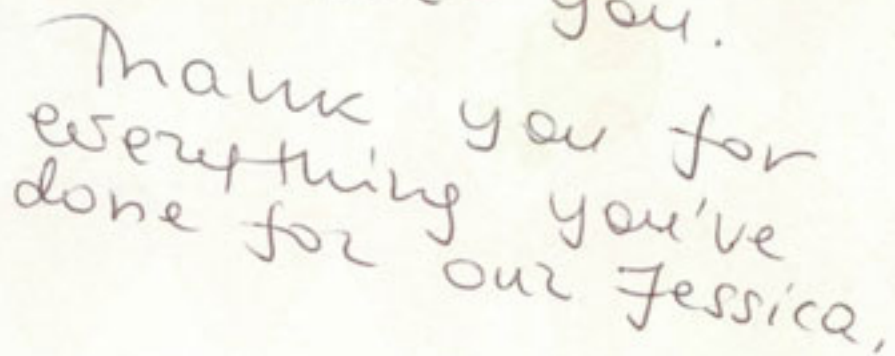 you.
Thank you for
everything you've
done for our Jessica,